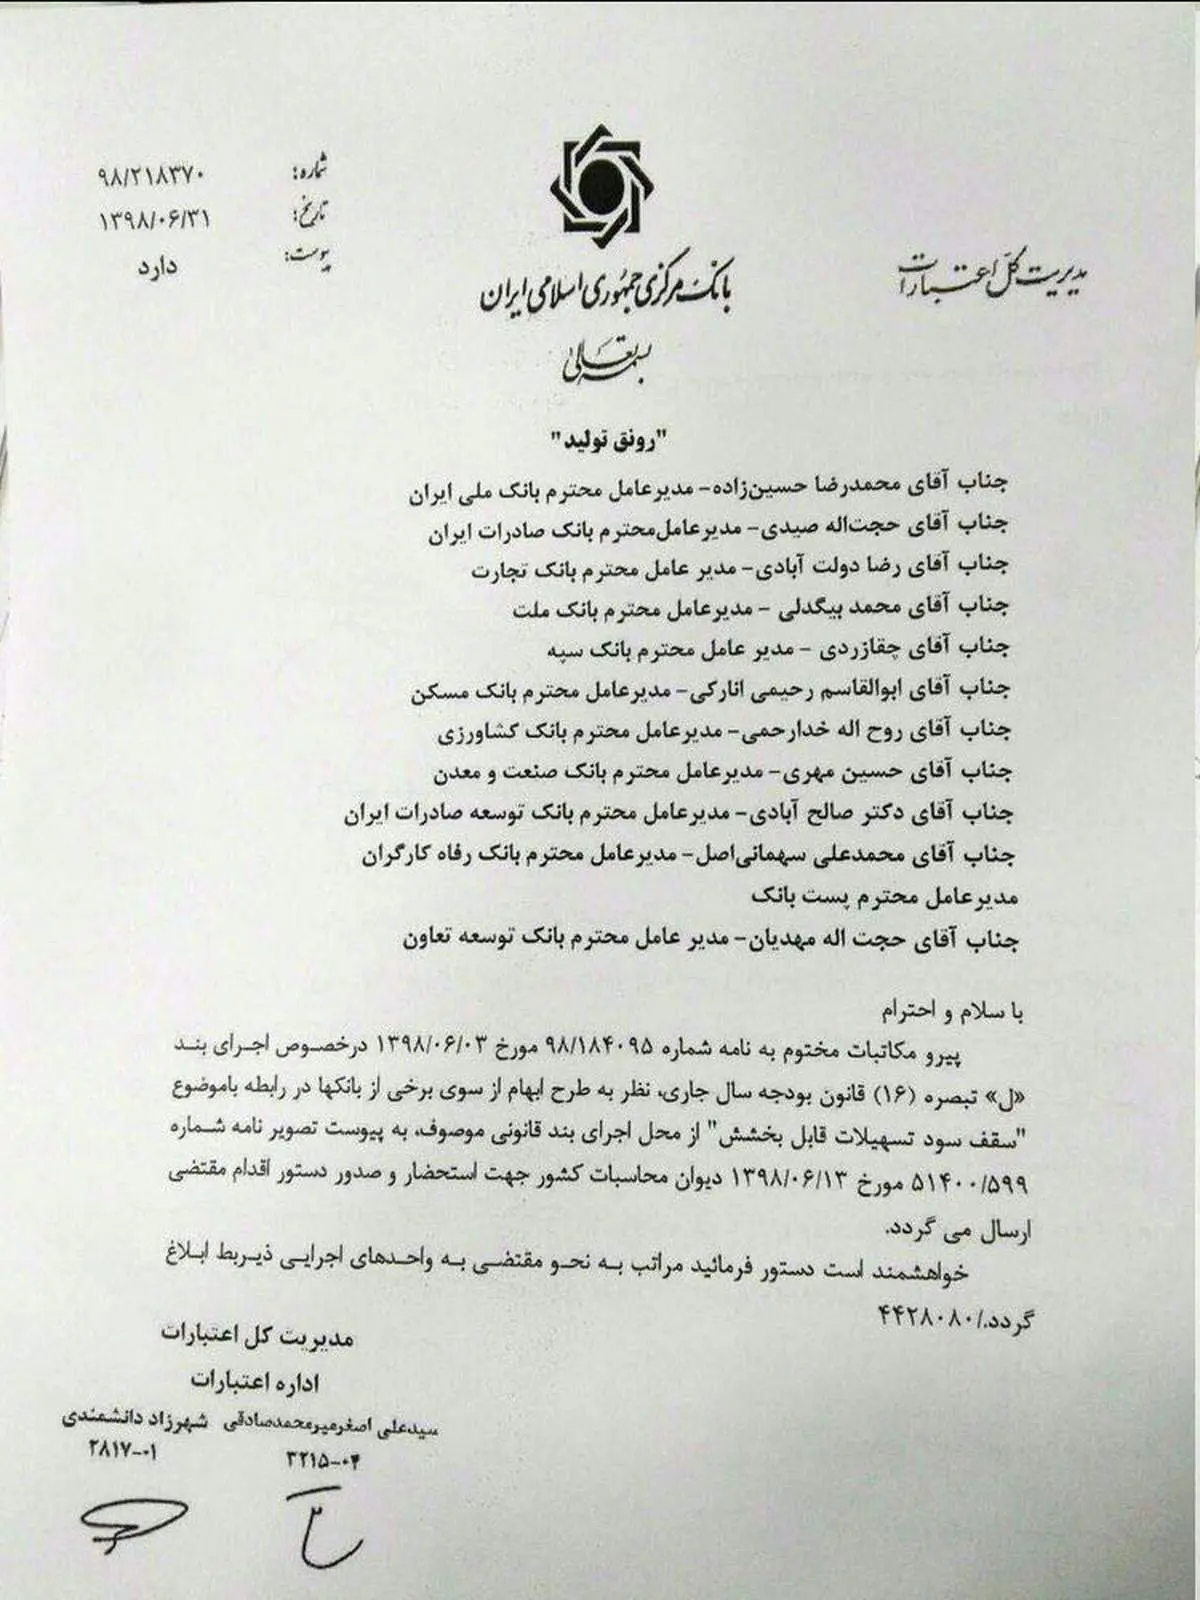 شماره: ۹۸/۲۱۸۳۷۰
تاریخ: ۱۳۹۸/۰۶/۳۱
پیوست: دارد
بانک مرکزی جمهوری اسلامی ایران
مدیریت کل اعتبارات
بسمه تعالی
"رونق تولید"
جناب آقای محمدرضا حسین‌زاده- مدیرعامل محترم بانک ملی ایران
جناب آقای حجت‌اله صیدی- مدیرعامل‌محترم بانک صادرات ایران
جناب آقای رضا دولت آبادی- مدیر عامل محترم بانک تجارت
جناب آقای محمد بیگدلی - مدیرعامل محترم بانک ملت
جناب آقای چقازردی - مدیر عامل محترم بانک سپه
جناب آقای ابوالقاسم رحیمی انارکی- مدیرعامل محترم بانک مسکن
جناب آقای روح اله خدارحمی- مدیرعامل محترم بانک کشاورزی
جناب آقای حسین مهری- مدیرعامل محترم بانک صنعت و معدن
جناب آقای دکتر صالح آبادی- مدیرعامل محترم بانک توسعه صادرات ایران
جناب آقای محمدعلی سهمانی‌اصل- مدیرعامل محترم بانک رفاه کارگران
مدیرعامل محترم پست بانک
جناب آقای حجت اله مهدیان- مدیر عامل محترم بانک توسعه تعاون
با سلام و احترام
پیرو مکاتبات مختوم به نامه شماره ۹۸/۱۸۴۰۹۵ مورخ ۱۳۹۸/۰۶/۰۳ درخصوص اجرای بند
«ل» تبصره (۱۶) قانون بودجه سال جاری، نظر به طرح ابهام از سوی برخی از بانکها در رابطه باموضوع
"سقف سود تسهیلات قابل بخشش" از محل اجرای بند قانونی موصوف، به پیوست تصویر نامه شماره
۵۱۴۰۰/۵۹۹ مورخ ۱۳۹۸/۰۶/۱۳ دیوان محاسبات کشور جهت استحضار و صدور دستور اقدام مقتضی
ارسال می گردد.
خواهشمند است دستور فرمائید مراتب به نحو مقتضی به واحدهای اجرایی ذیربط ابلاغ
گردد./۴۴۲۸۰۸۰
مدیریت کل اعتبارات
اداره اعتبارات
سیدعلی اصغرمیرمحمدصادقی شهرزاد دانشمندی
۳۲۱۵-۰۴ ۲۸۱۷-۰۱